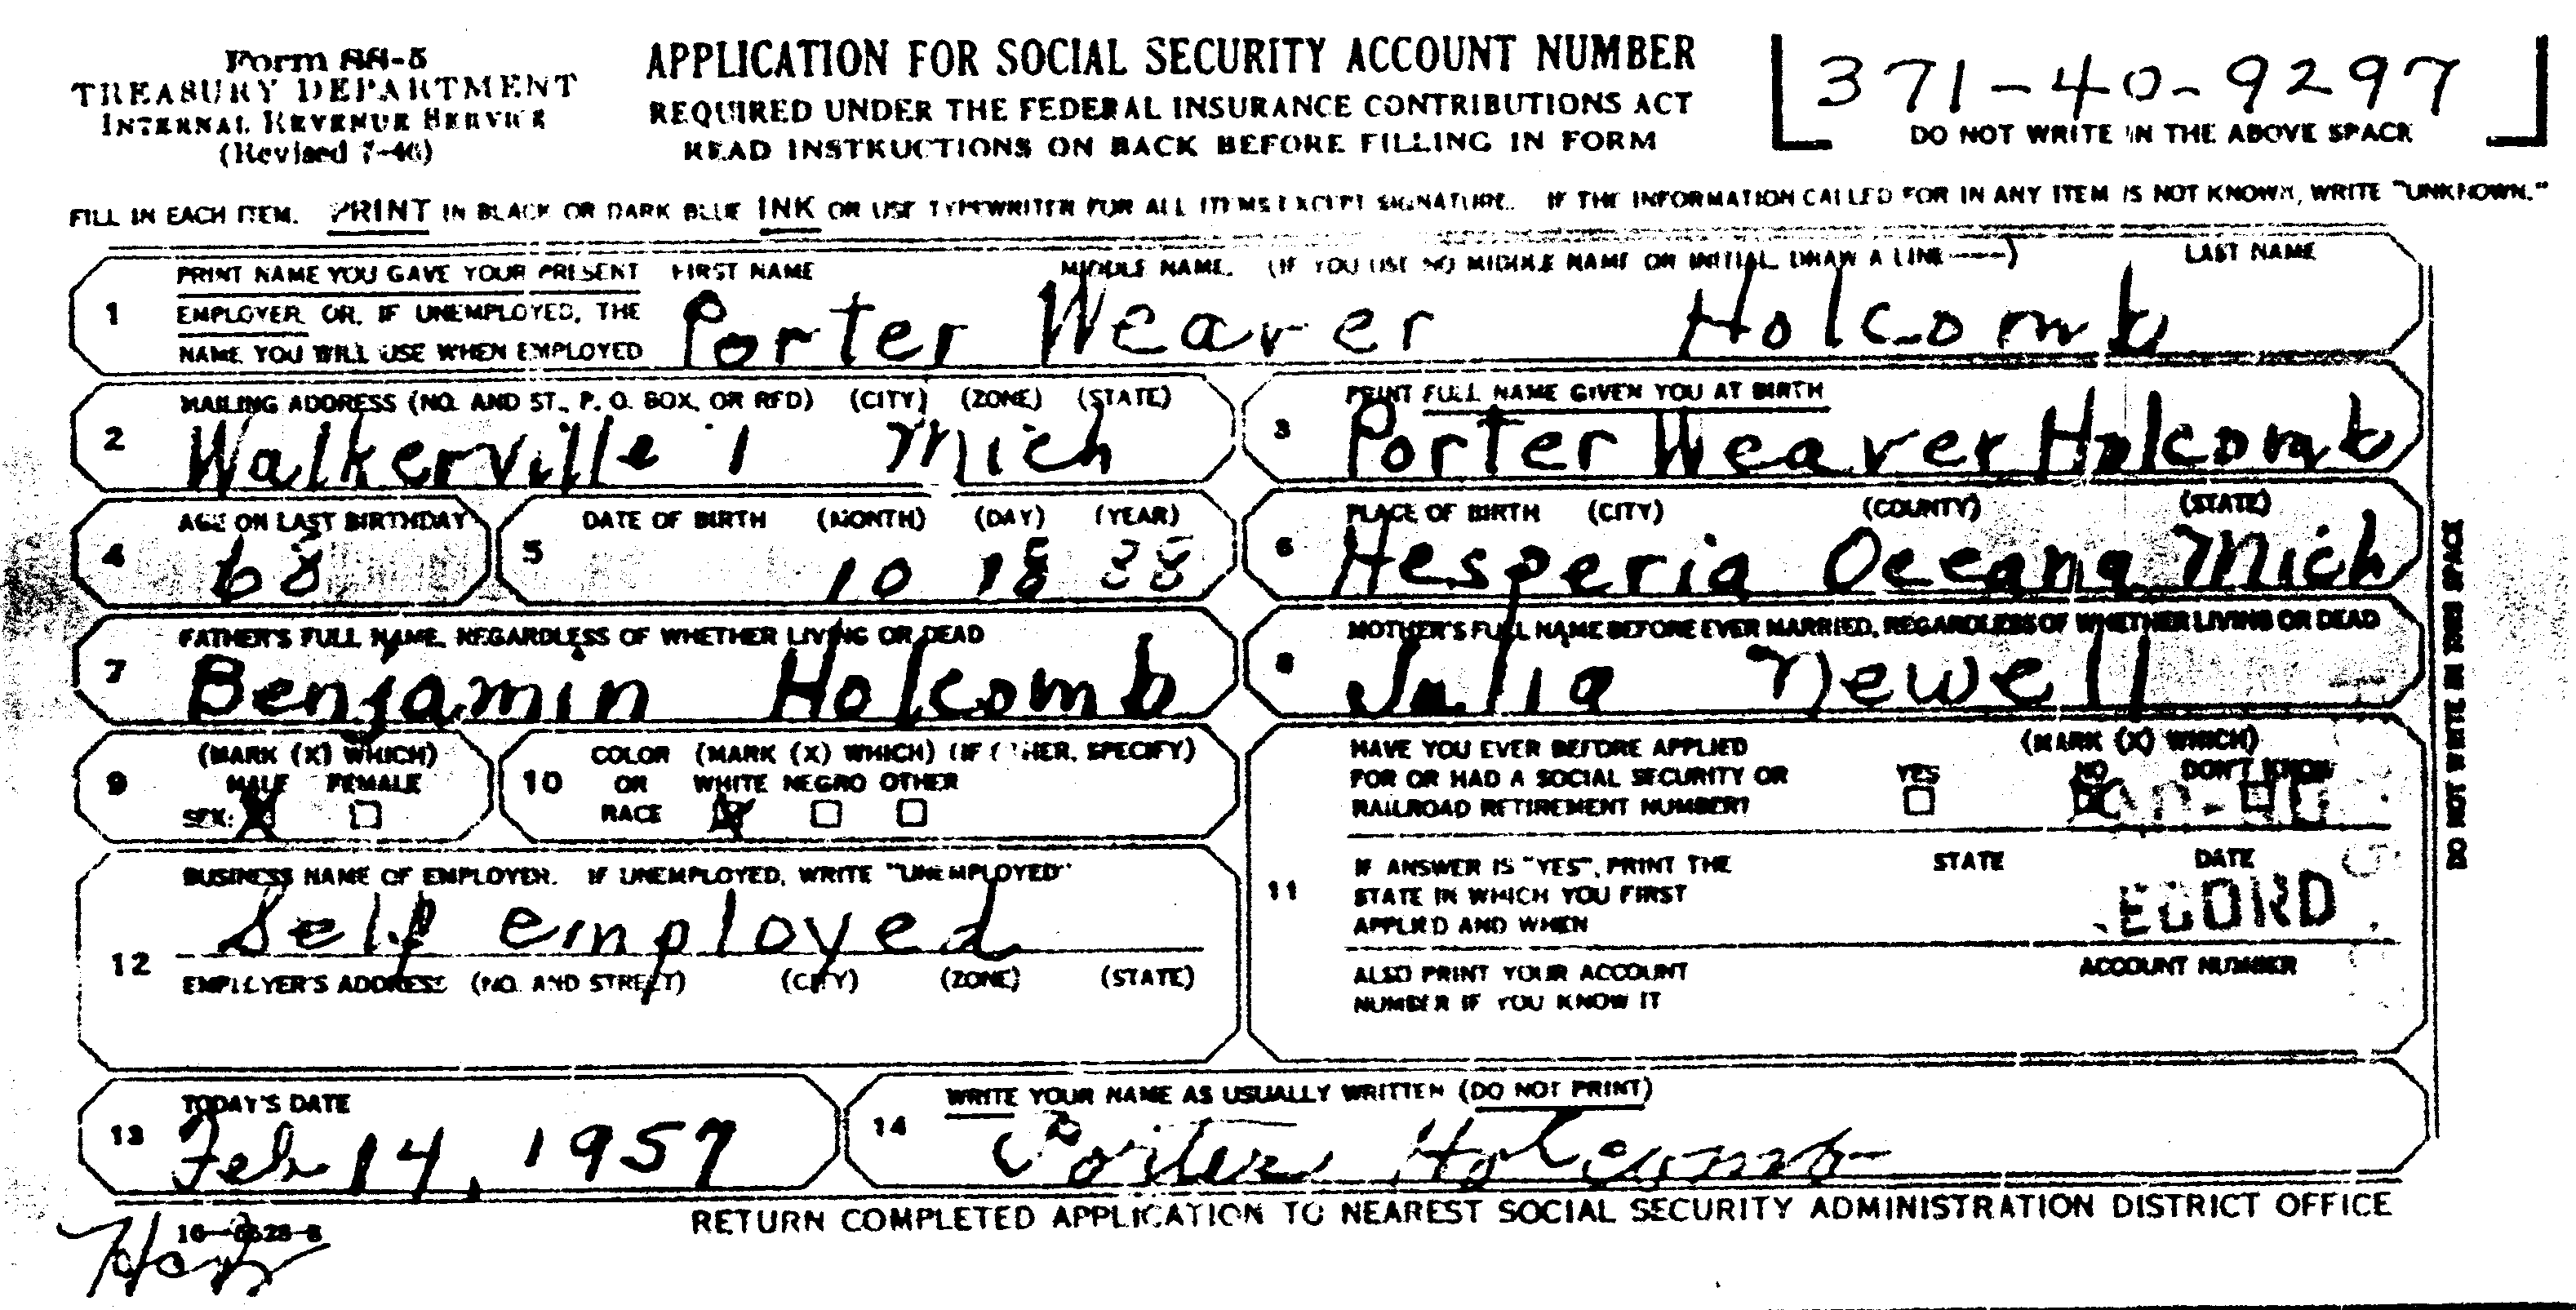 Form SS-5
TREASURY DEPARTMENT
INTERNAL REVENUE SERVICE
(Revised 7-46)
APPLICATION FOR SOCIAL SECURITY ACCOUNT NUMBER
REQUIRED UNDER THE FEDERAL INSURANCE CONTRIBUTIONS ACT
READ INSTRUCTIONS ON BACK BEFORE FILLING IN FORM
371-40-9297
DO NOT WRITE IN THE ABOVE SPACE
FILL IN EACH ITEM. PRINT IN BLACK OR DARK BLUE INK OR USE TYPEWRITER FOR ALL ITEMS EXCEPT SIGNATURE. IF THE INFORMATION CALLED FOR IN ANY ITEM IS NOT KNOWN, WRITE "UNKNOWN."
1 PRINT NAME YOU GAVE YOUR PRESENT
EMPLOYER OR, IF UNEMPLOYED, THE
NAME YOU WILL USE WHEN EMPLOYED
FIRST NAME MIDDLE NAME. (IF YOU USE NO MIDDLE NAME OR INITIAL, DRAW A LINE ——) LAST NAME
Porter Weaver Holcomb
2 MAILING ADDRESS (NO. AND ST., P. O. BOX, OR RFD) (CITY) (ZONE) (STATE)
Walkerville 1 Mich
3 PRINT FULL NAME GIVEN YOU AT BIRTH
Porter Weaver Holcomb
4 AGE ON LAST BIRTHDAY
68
5 DATE OF BIRTH (MONTH) (DAY) (YEAR)
10 18 88
6 PLACE OF BIRTH (CITY) (COUNTY) (STATE)
Hesperia Oceana Mich
7 FATHER'S FULL NAME, REGARDLESS OF WHETHER LIVING OR DEAD
Benjamin Holcomb
8 MOTHER'S FULL NAME BEFORE EVER MARRIED, REGARDLESS OF WHETHER LIVING OR DEAD
Julia Newell
9 (MARK (X) WHICH)
MALE FEMALE
SEX: X
10 COLOR (MARK (X) WHICH) (IF OTHER, SPECIFY)
OR WHITE NEGRO OTHER
RACE X
11 HAVE YOU EVER BEFORE APPLIED
FOR OR HAD A SOCIAL SECURITY OR
RAILROAD RETIREMENT NUMBER?
(MARK (X) WHICH)
YES NO DON'T KNOW
X
IF ANSWER IS "YES", PRINT THE
STATE IN WHICH YOU FIRST
APPLIED AND WHEN
STATE DATE
ECORD
ALSO PRINT YOUR ACCOUNT
NUMBER IF YOU KNOW IT
ACCOUNT NUMBER
12 BUSINESS NAME OF EMPLOYER. IF UNEMPLOYED, WRITE "UNEMPLOYED"
Self employed
EMPLOYER'S ADDRESS (NO. AND STREET) (CITY) (ZONE) (STATE)
13 TODAY'S DATE
Feb 14, 1957
14 WRITE YOUR NAME AS USUALLY WRITTEN (DO NOT PRINT)
Porter Holcomb
DO NOT WRITE IN THIS SPACE
RETURN COMPLETED APPLICATION TO NEAREST SOCIAL SECURITY ADMINISTRATION DISTRICT OFFICE